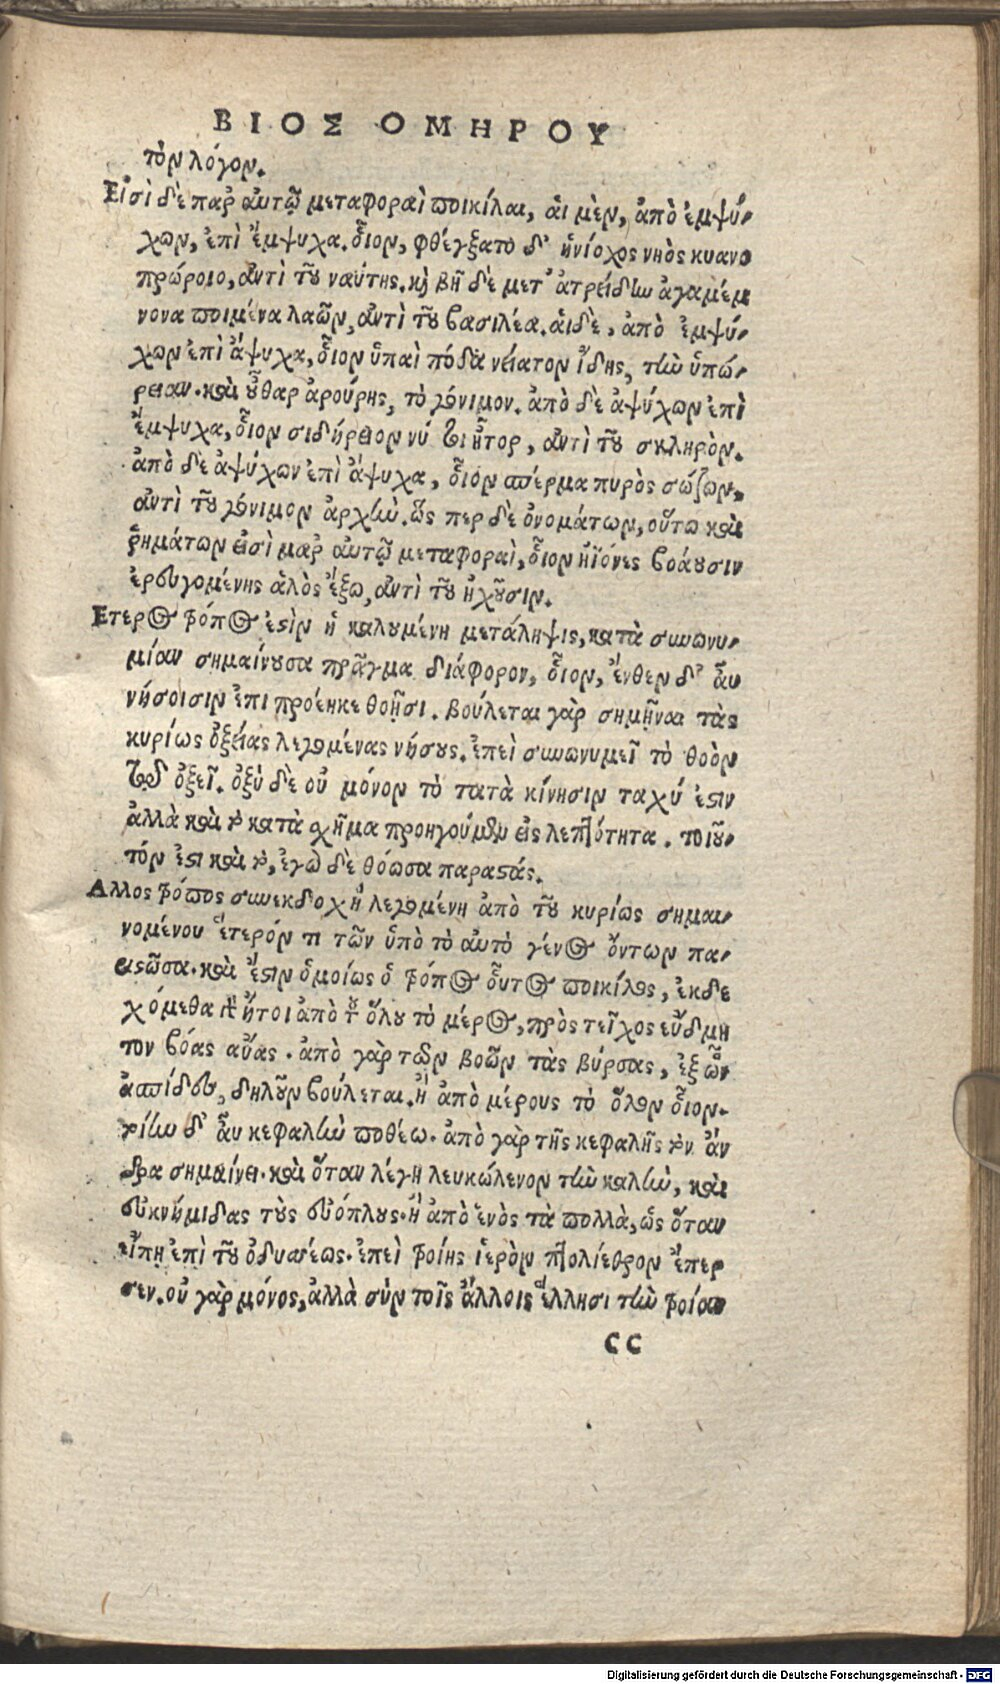 ΒΙΟΣ ΟΜΗΡΟΥ
τὸν λόγον.
Εἰσὶ δὲ παρ' αὐτῷ μεταφοραὶ ποικίλαι, ἁι μὲν, ἀπὸ ἐμψύ-
χων, ἐπὶ ἔμψυχα. οἷον, φθέγξατο δ' ἡνίοχος νηὸς κυανο
πρώροιο, ἀντὶ τοῦ ναύτης. καὶ βῆ δὲ μετ' ἀτρείδην ἀγαμέμ
νονα ποιμένα λαῶν, ἀντὶ τοῦ βασιλέα. ἁι δὲ, ἀπὸ ἐμψύ-
χων ἐπὶ ἄψυχα, οἷον ὑπαὶ πόδα νείατον ἴδης, τὴν ὑπώ-
ρειαν. καὶ οὖθαρ ἀρούρης, τὸ γόνιμον. ἀπὸ δὲ ἀψύχων ἐπὶ
ἔμψυχα, οἷον σιδήρειον νύ τοι ἦτορ, ἀντὶ τοῦ σκληρὸν.
ἀπὸ δὲ ἀψύχων ἐπὶ ἄψυχα, οἷον σπέρμα πυρὸς σώζων,
ἀντὶ τοῦ γόνιμον ἀρχὴν. ὥς περ δὲ ὀνομάτων, οὕτω καὶ
ῥημάτων εἰσὶ μαρ' αὐτῷ μεταφοραὶ, οἷον ἠϊόνες βοάουσιν
ἐρευγομένης ἁλὸς ἔξω, ἀντὶ τοῦ ἠχοῦσιν.
Ετερος τρόπος ἐστὶν ἡ καλουμένη μετάληψις, κατὰ συνωνυ-
μίαν σημαίνουσα πρᾶγμα διάφορον, οἷον, ἔνθεν δ' ἂυ
νήσοισιν ἐπι προέηκε θοῇσι. βούλεται γὰρ σημῆναι τὰς
κυρίως ὀξείας λεγομένας νήσους. ἐπεὶ συνωνυμεῖ τὸ θοὸν
τῷ ὀξεῖ. ὀξὺ δὲ οὐ μόνον τὸ τατὰ κίνησιν ταχύ ἐστιν
ἀλλὰ καὶ τὸ κατὰ σχῆμα προηγούμενον εἰς λεπτότητα. τοιοῦ-
τόν ἐστι καὶ τὸ, ἐγὼ δὲ θόωσα παραστάς.
Αλλος τρόπος συνεκδοχὴ λεγομένη ἀπὸ τοῦ κυρίως σημαι-
νομένου ἕτερόν τι τῶν ὑπὸ τὸ αὐτὸ γένος ὄντων πα-
ριστῶσα. καὶ ἔστιν ὁμοίως ὁ τρόπος οὗτος ποικίλος, ἐκδε
χόμεθα γὰρ ἤτοι ἀπὸ τοῦ ὅλου τὸ μέρος, πρὸς τεῖχος εὔδμη
τον βόας αὔας. ἀπὸ γὰρ τῶν βοῶν τὰς βύρσας, ἐξ ὧν
ἀσπίδες, δηλοῦν βούλεται. ἢ ἀπὸ μέρους τὸ ὅλον οἷον.
τοίην δ' ἂυ κεφαλὴν ποθέω. ἀπὸ γὰρ τῆς κεφαλῆς τὸν ἄν
δρα σημαίνει. καὶ ὅταν λέγη λευκώλενον τὴν καλὴν, καὶ
εὐκνήμιδας τοὺς εὐόπλους. ἢ ἀπὸ ἑνὸς τὰ πολλὰ, ὡς ὅταν
εἴπῃ ἐπὶ τοῦ ὀδυσσέως. ἐπεὶ τροίης ἱερὸν πτολίεθρον ἔπερ
σεν. οὐ γὰρ μόνος, ἀλλὰ σὺν τοῖς ἄλλοις ἕλλησι τὴν τροίαν
CC
Digitalisierung gefördert durch die Deutsche Forschungsgemeinschaft - DFG